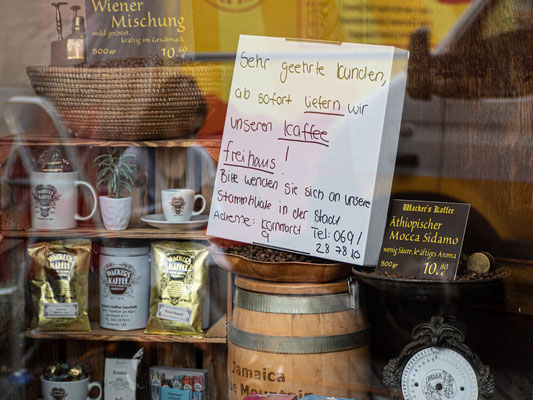 Wiener
Mischung
mild geröstet
kräftig im Geschmack
500gr
10.80
Sehr geehrte Kunden,
ab sofort liefern wir
unseren Kaffee
frei haus !
Bitte wenden Sie sich an unsere
Stammfiliale in der Stadt
Adresse: Kornmarkt Tel: 069/
9 28 78 10
Wacker's Kaffee
Äthiopischer
Mocca Sidamo
wenig Säure, kräftiges Aroma
500 gr
10,80
WACKER'S
KAFFEE
Jamaica